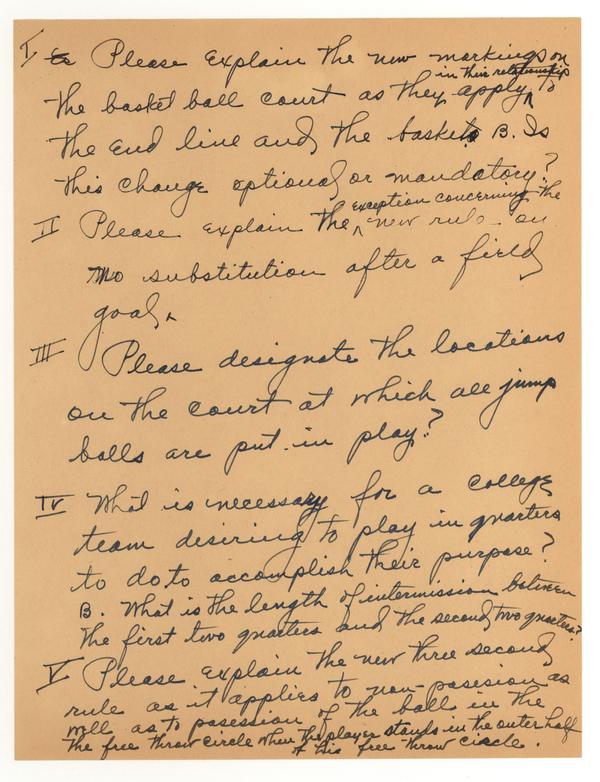 I Ex Please Explain the new markings on
in their relationship
the basket ball court as they apply ^ to
the End line and the baskets B. Is
this change optional or mandatory?
exception concerning the
II Please explain the ^ new rule on
no substitution after a field
goal.
III Please designate the locations
on the court at which all jump
balls are put in play?
IV What is necessary for a college
team desiring to play in quarters
to do to accomplish their purpose?
B. What is the length of intermission between
the first two quarters and the second two quarters?
V Please explain the new three second
rule as it applies to non-posesion as
well as to posession of the ball in the
the free throw circle when the player stands in the outer half
of his free throw circle.